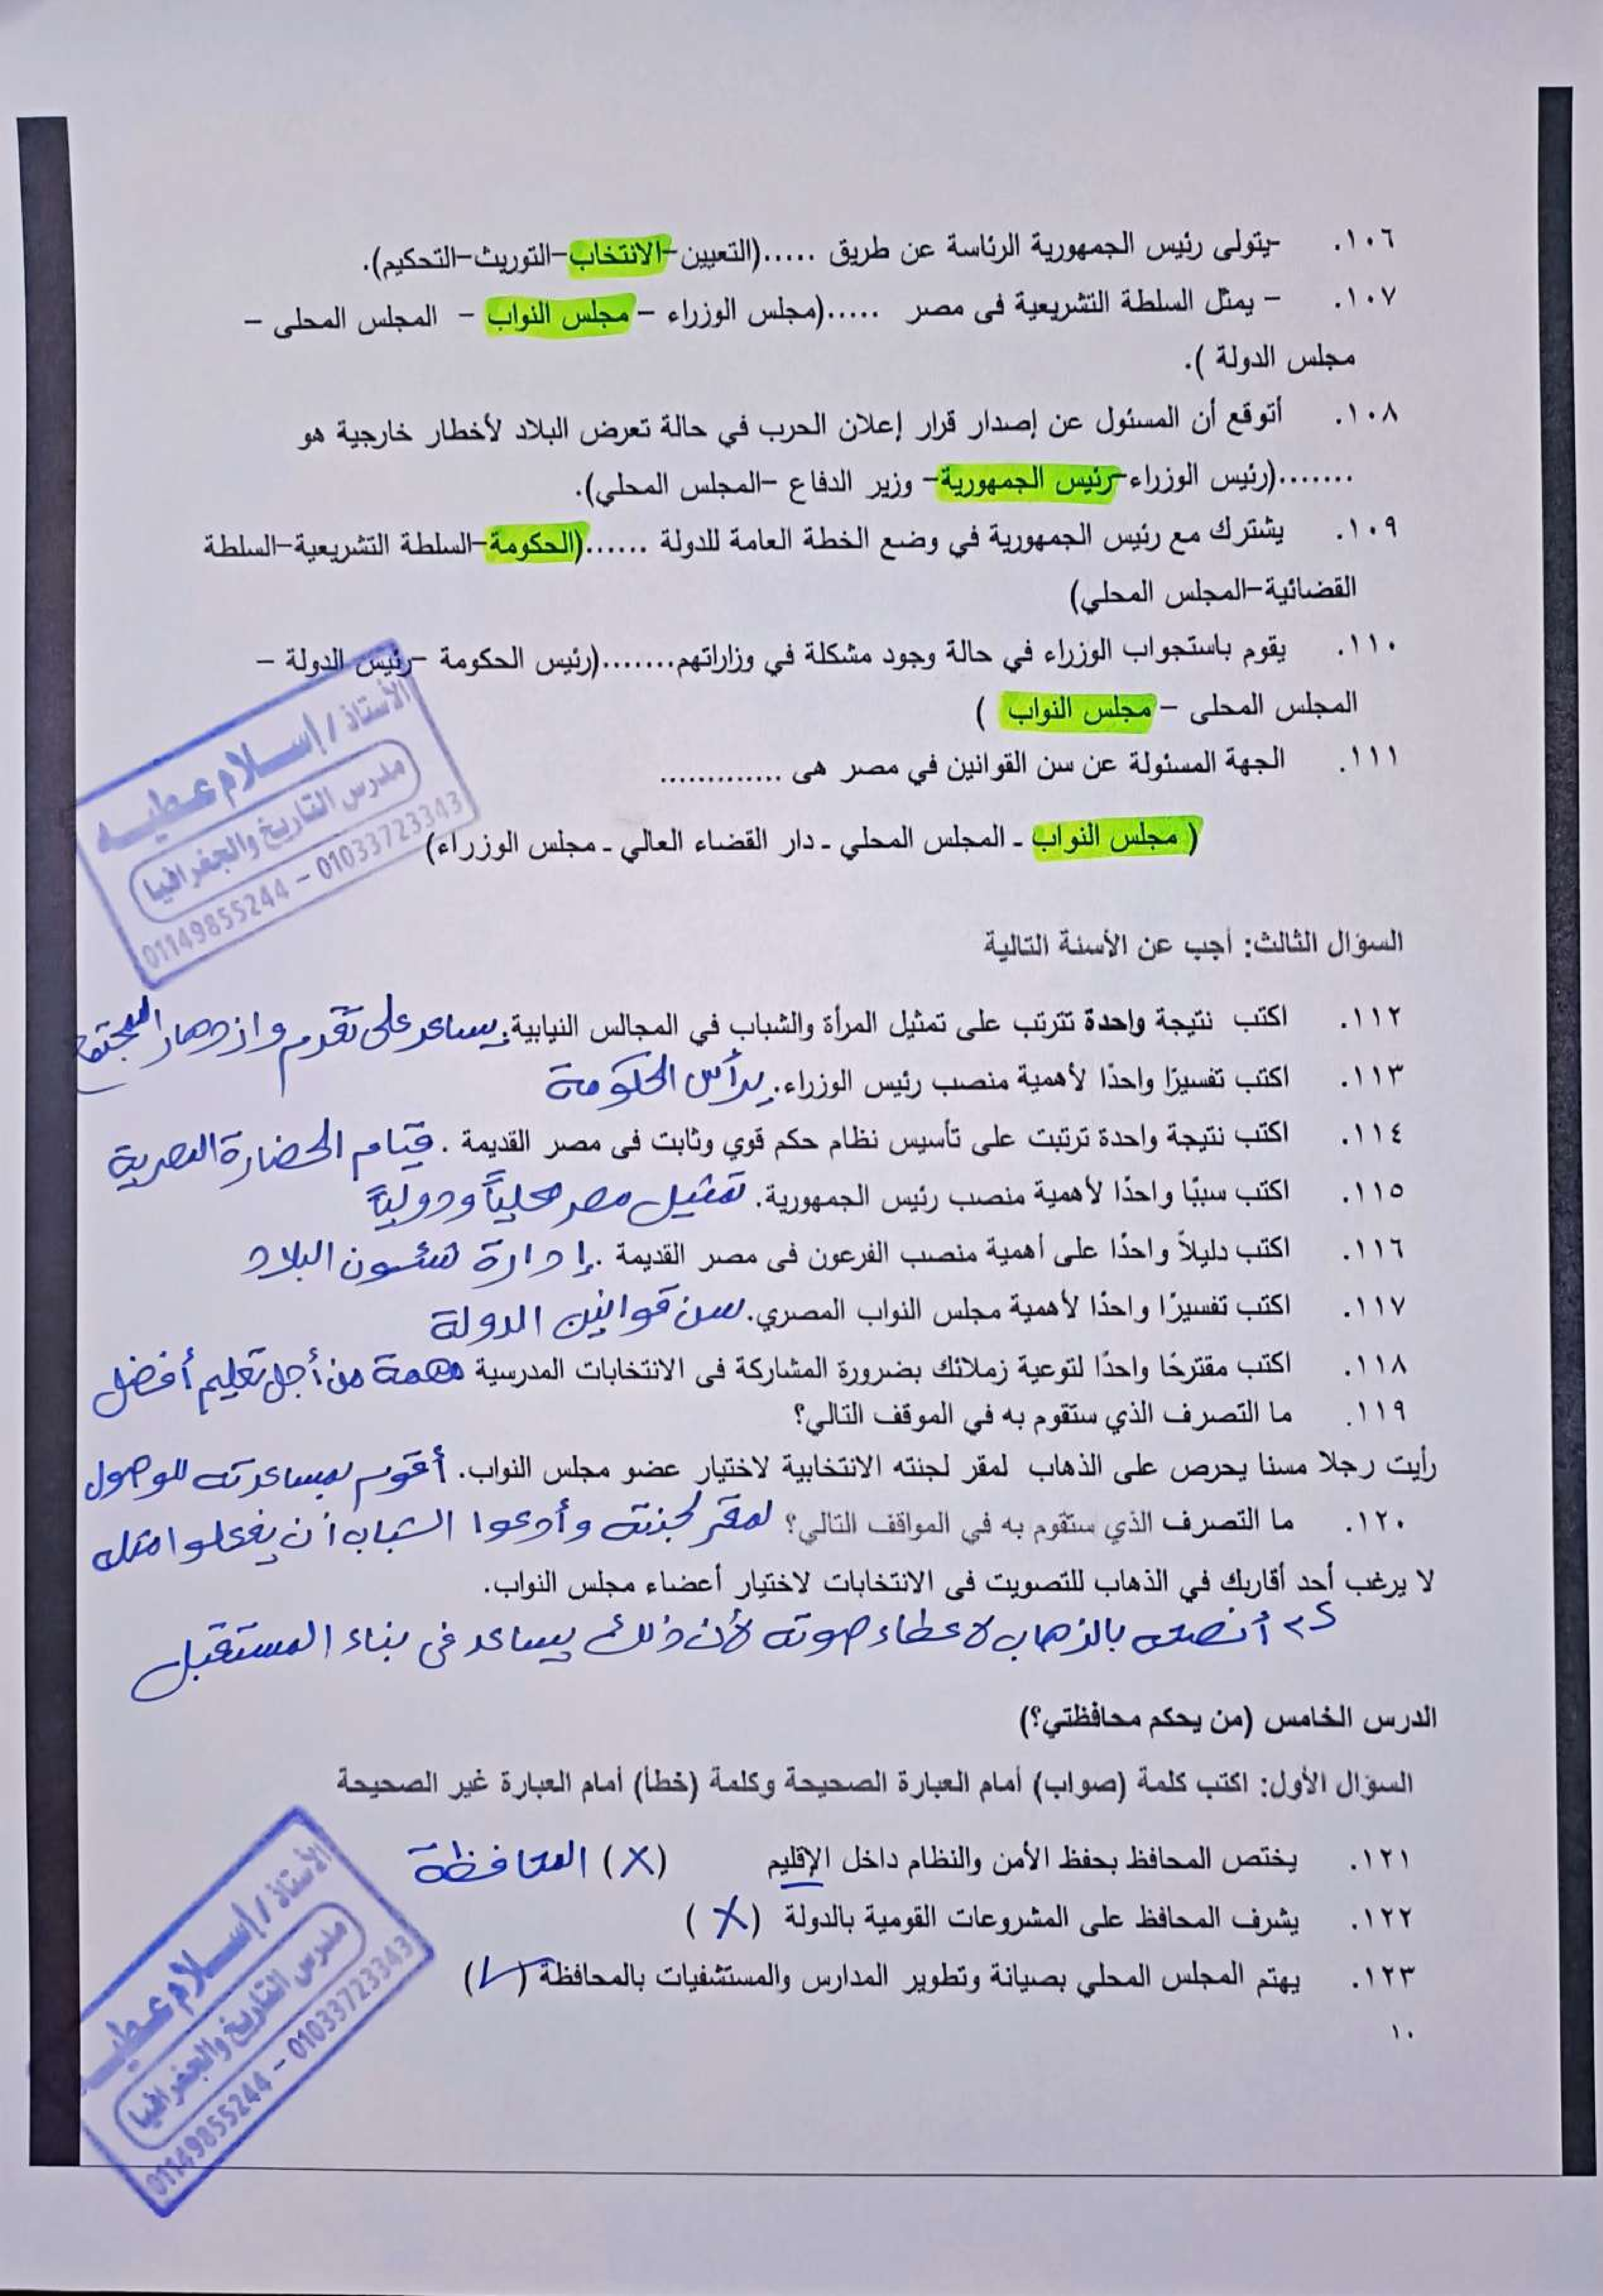 ١٠٦. -يتولى رئيس الجمهورية الرئاسة عن طريق .....(التعيين-الانتخاب-التوريث-التحكيم).
١٠٧. - يمثل السلطة التشريعية فى مصر .....(مجلس الوزراء - مجلس النواب - المجلس المحلى -
مجلس الدولة ).
١٠٨. أتوقع أن المسئول عن إصدار قرار إعلان الحرب في حالة تعرض البلاد لأخطار خارجية هو
.......(رئيس الوزراء-رئيس الجمهورية- وزير الدفاع -المجلس المحلي).
١٠٩. يشترك مع رئيس الجمهورية في وضع الخطة العامة للدولة ......(الحكومة-السلطة التشريعية-السلطة
القضائية-المجلس المحلي)
١١٠. يقوم باستجواب الوزراء في حالة وجود مشكلة في وزاراتهم.......(رئيس الحكومة -رئيس الدولة -
المجلس المحلى - مجلس النواب )
١١١. الجهة المسئولة عن سن القوانين في مصر هى .............
( مجلس النواب - المجلس المحلي - دار القضاء العالي - مجلس الوزراء)
الأستاذ / إسلام عطيه
مدرس التاريخ والجغرافيا
01149855244 - 01033723343
السؤال الثالث: أجب عن الأسئة التالية
١١٢. اكتب نتيجة واحدة تترتب على تمثيل المرأة والشباب في المجالس النيابية. يساعد على تقدم وازدهار المجتمع
١١٣. اكتب تفسيرًا واحدًا لأهمية منصب رئيس الوزراء. يرأس الحكومة
١١٤. اكتب نتيجة واحدة ترتبت على تأسيس نظام حكم قوي وثابت فى مصر القديمة . قيام الحضارة المصرية
١١٥. اكتب سببًا واحدًا لأهمية منصب رئيس الجمهورية. تمثيل مصر محلياً ودولياً
١١٦. اكتب دليلاً واحدًا على أهمية منصب الفرعون فى مصر القديمة . إدارة شئون البلاد
١١٧. اكتب تفسيرًا واحدًا لأهمية مجلس النواب المصري. سن قوانين الدولة
١١٨. اكتب مقترحًا واحدًا لتوعية زملائك بضرورة المشاركة فى الانتخابات المدرسية مهمة من أجل تعليم أفضل
١١٩. ما التصرف الذي ستقوم به في الموقف التالي؟
رأيت رجلا مسنا يحرص على الذهاب لمقر لجنته الانتخابية لاختيار عضو مجلس النواب. أقوم بمساعدته للوصول
١٢٠. ما التصرف الذي ستقوم به في المواقف التالي؟ لمقر لجنته وأدعوا الشباب أن يفعلوا مثله
لا يرغب أحد أقاربك في الذهاب للتصويت فى الانتخابات لاختيار أعضاء مجلس النواب.
أنصحه بالذهاب لاعطاء صوته لأن ذلك يساعد فى بناء المستقبل
الدرس الخامس (من يحكم محافظتي؟)
السؤال الأول: اكتب كلمة (صواب) أمام العبارة الصحيحة وكلمة (خطأ) أمام العبارة غير الصحيحة
١٢١. يختص المحافظ بحفظ الأمن والنظام داخل الإقليم (X) المحافظة
١٢٢. يشرف المحافظ على المشروعات القومية بالدولة (X)
١٢٣. يهتم المجلس المحلي بصيانة وتطوير المدارس والمستشفيات بالمحافظة (✓)
١٠
الأستاذ / إسلام عطيه
مدرس التاريخ والجغرافيا
01149855244 - 01033723343